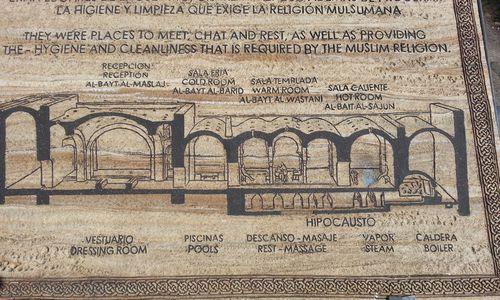 LA HIGIENE Y LIMPIEZA QUE EXIGE LA RELIGION MULSUMANA.
THEY WERE PLACES TO MEET, CHAT AND REST, AS WELL AS PROVIDING
THE - HYGIENE AND CLEANLINESS THAT IS REQUIRED BY THE MUSLIM RELIGION.
RECEPCION
RECEPTION
AL-BAYT AL-MASLAJ
SALA FRIA
COLD ROOM
AL-BAYT AL-BARID
SALA TEMPLADA
WARM ROOM
AL-BAYT AL WASTANI
SALA CALIENTE
HOT ROOM
AL-BAIT AL-SAJUN
HIPOCAUSTO
VESTUARIO
DRESSING ROOM
PISCINAS
POOLS
DESCANSO - MASAJE
REST - MASSAGE
VAPOR
STEAM
CALDERA
BOILER